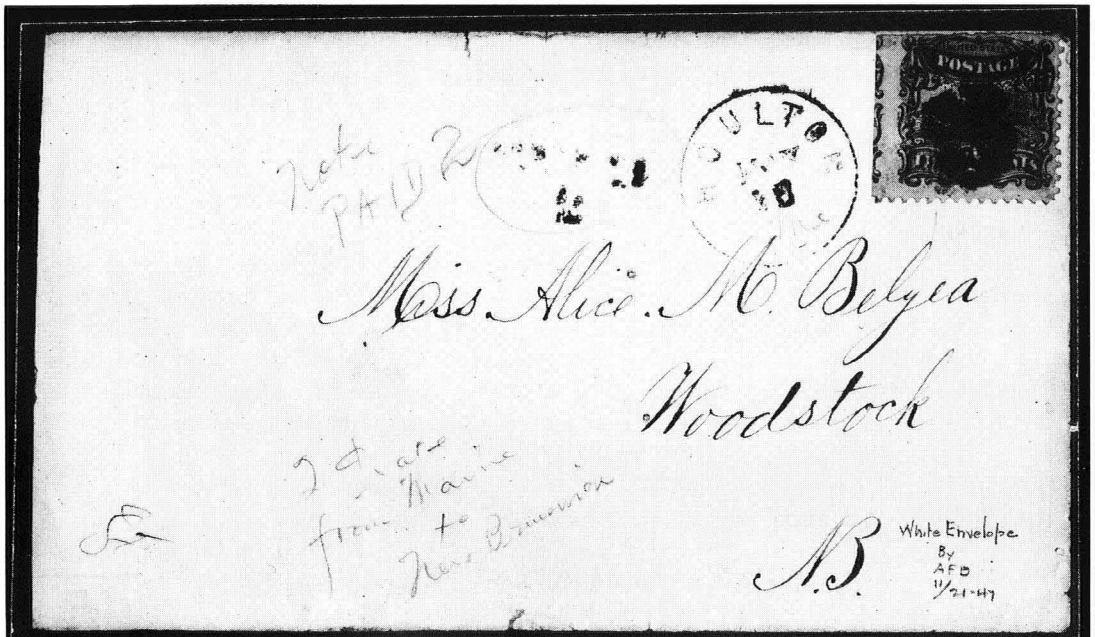 UNITED STATES
POSTAGE
HOULTON
Note
PAID 2
Me
Miss Alice. M. Belyea
Woodstock
N.B.
2 ct. rate
from Maine
to
New Brunswick
White Envelope
By
AFB
11/21-47